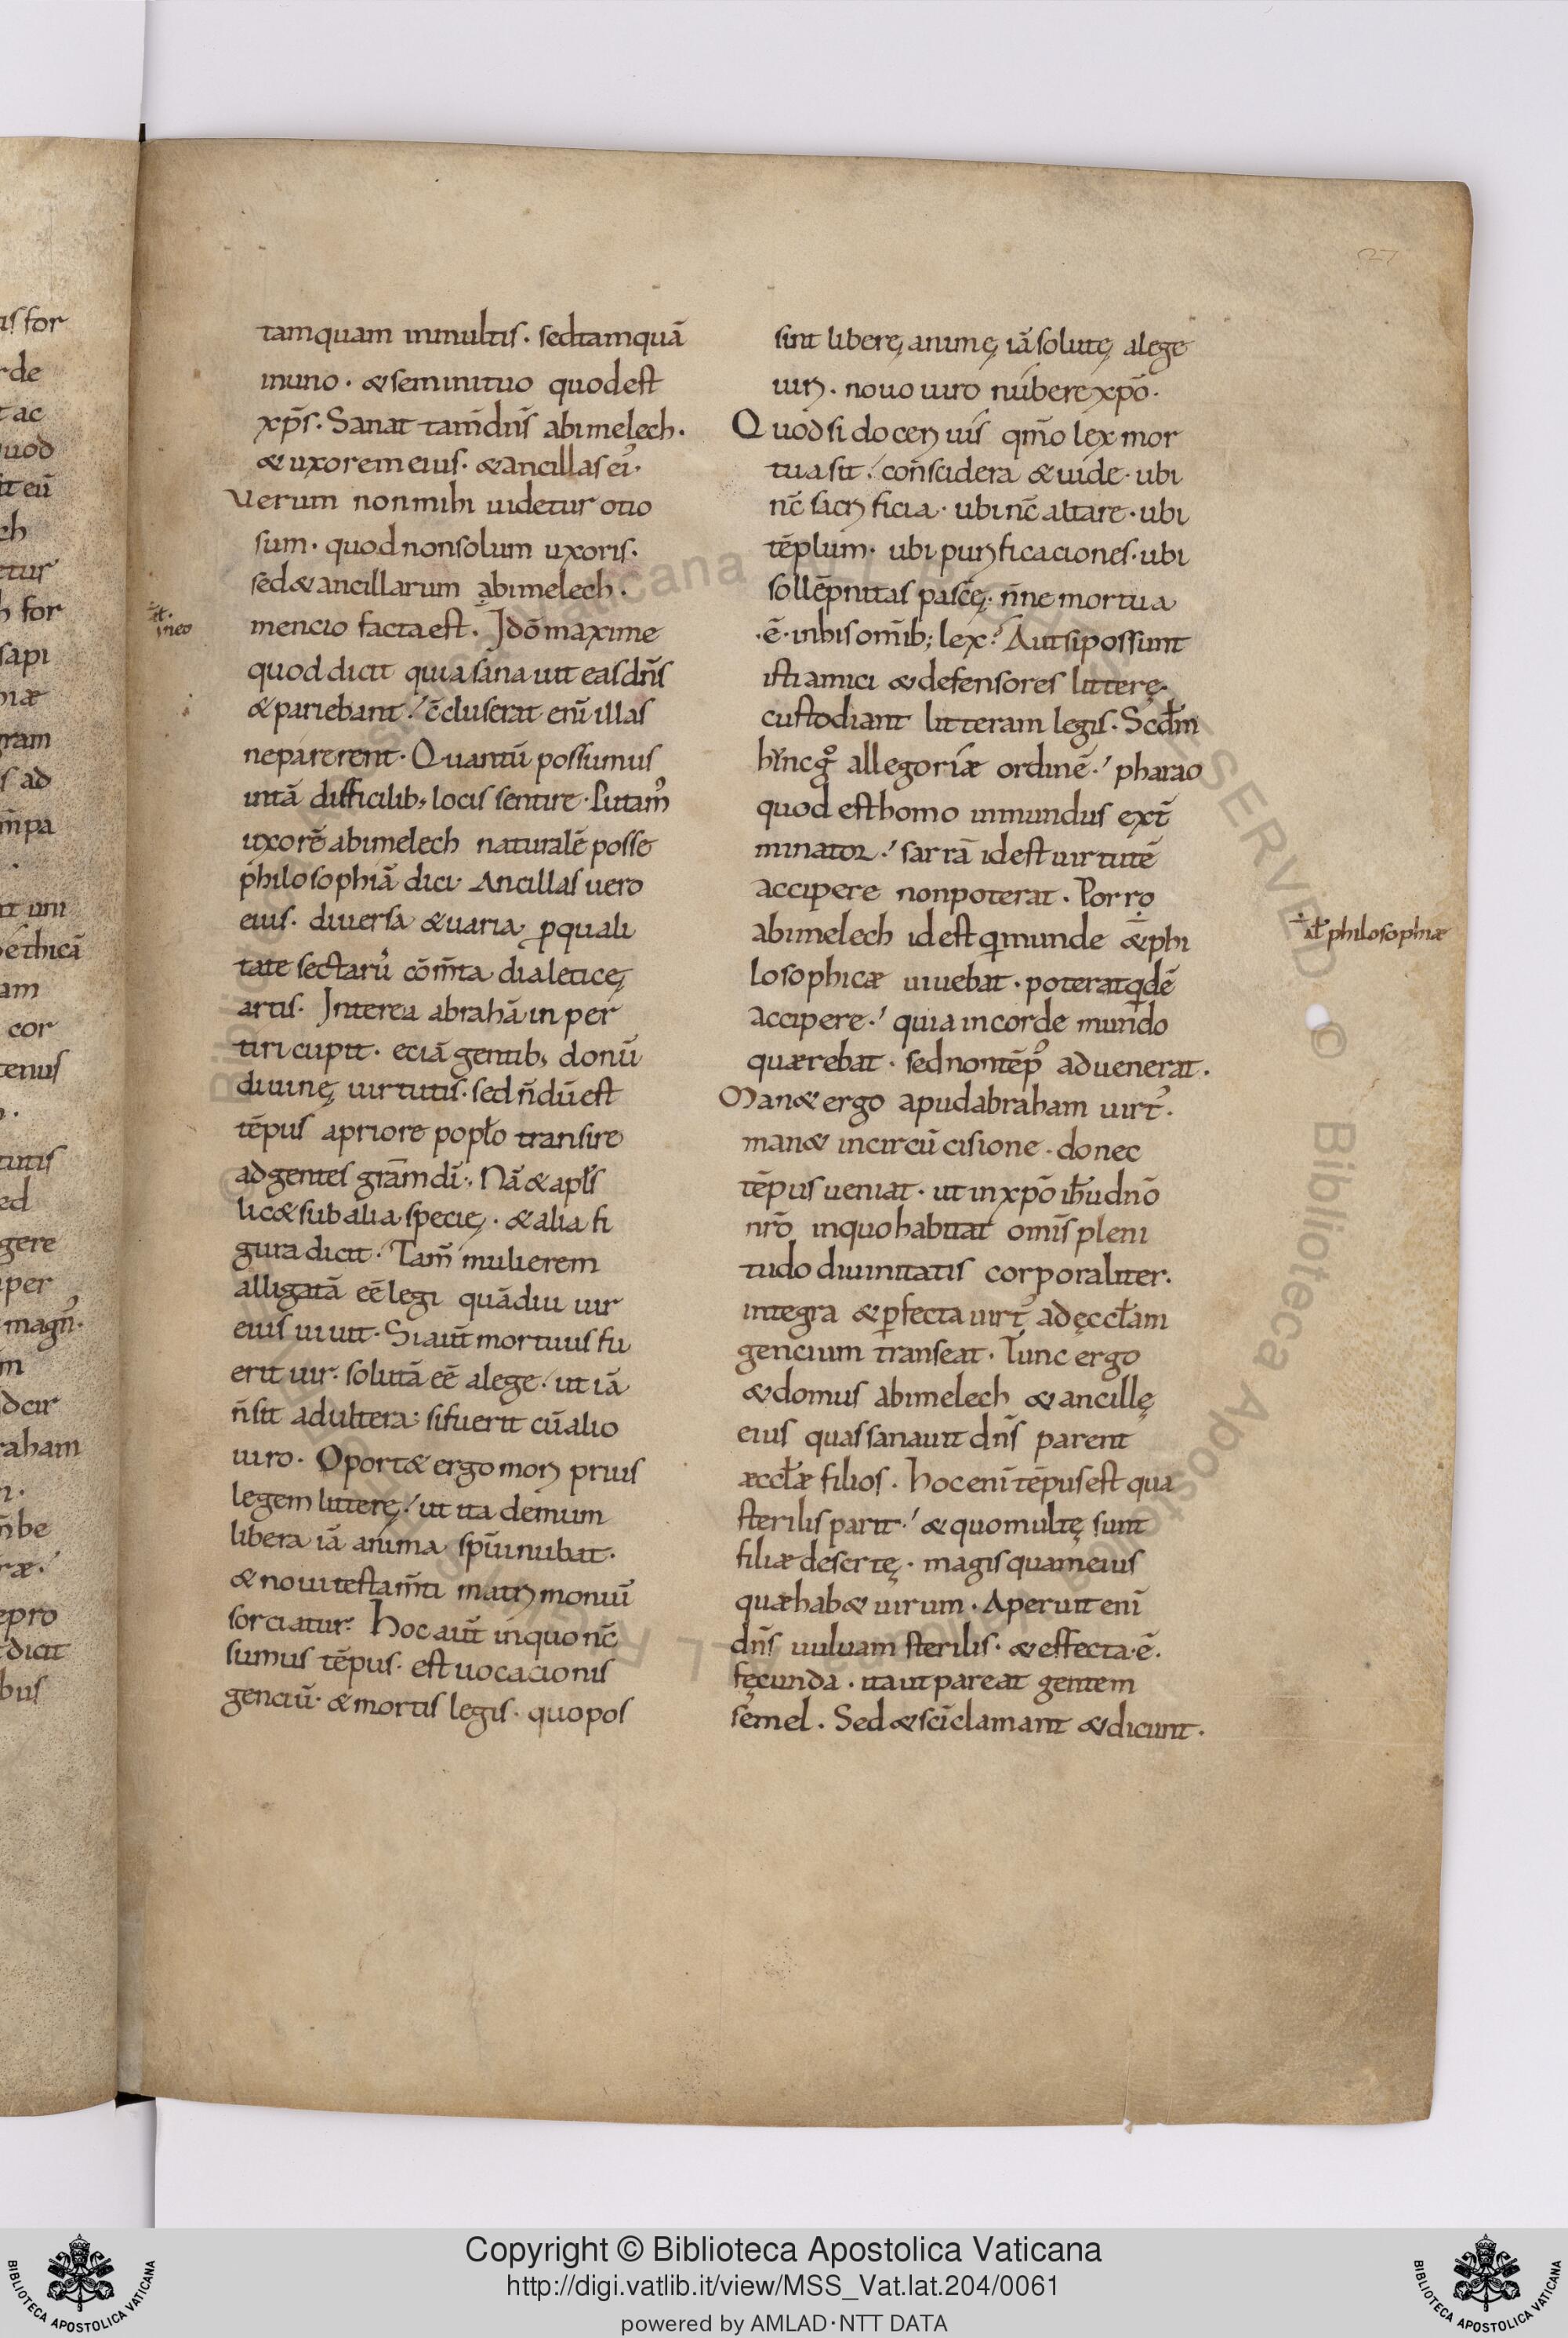 27
tamquam inmultis. sedtamquā
inuno. &seminituo quodest
xp̄s. Sanat tam̄dn̄s abimelech.
& uxoremeius. &ancillasei᾽.
Verum nonmihi uidetur otio
sum. quodnonsolum uxoris.
sed&ancillarum abimelech.
mencio factaest. Idō maxime
quod dicit quia sana uit eas dn̄s
& pariebant. c̄cluserat eni̅ illas
neparerent. Quantū possumus
intā difficilib; locis sentire. Putam᾽
uxorē abimelech naturalē posse
philosophiā dici. Ancillas uero
eius. diuersa &uaria. ꝑquali
tate sectarū cōm̄ta dialeticę
artis. Interea abrahā inper
tiri cupit. eciā gentib; donū
diuinę uirtutis. sed n̄dū est
tēpus apriore popło transire
adgentes grām di̅. Nā & apl̄s
lic& sub alia specię. & alia fi
gura dicit. Tam̄ mulierem
alligatā eē legi quādiu uir
eius uiuit. Si aut̄ mortuus fu
erit uir. solutā eē alege. ut iā
n̄sit adultera: si fuerit cū alio
uiro. Oport& ergo mori prius
legem litterę. ut ita demum
libera iā anima spi̅u nubat.
& noui testam̄ti matrimoniū
sorciatur. Hoc aut̄ inquo nc̄
sumus tēpus. est uocacionis
genciū. & mortis legis. quo pos
sint liberę animę iā solutę alege
uiri. nouo uiro nubere xpō.
Quod si doceri uis qm̄o lex mor
tua sit. con̄scidera & uide. ubi
nc̄ sacrificia. ubi nc̄ altare. ubi
tēplum. ubi purificaciones. ubi
sollēpnitas pascę. n̄ne mortua
.ē. inhis om̄ib; lex? Aut si possunt
isti amici & defensores litterę.
custodiant litteram legis. Scđm
hȳncg̊ allegoriæ ordinē. pharao
quod est homo inmundus ext̄
minator. sarrā id est uirtutē
accipere nonpoterat. Porro
abimelech id est qimunde & phi
losophicæ uiuebat. poterat qidē
accipere. quia incorde mundo
quærebat. sed nontēp᾽ aduenerat.
Man& ergo apud abraham uirt᾽.
man& incircū cisione. donec
tēpus ueniat. ut inxpō ih̅u dnō
nr̄o inquo habitat omi̅s pleni
tudo diuinitatis corporaliter.
integra & ꝑfecta uirt᾽ ad ęccłam
gencium transeat. Tunc ergo
& domus abimelech & ancillę
eius quas sanauit dn̄s parent
æccłæ filios. hoc eni̅ tēpus est qua
sterilis parit. & quo multę sunt
filiæ desertę. magis quam eius
quæ hab& uirum. Aperuit eni̅
dn̄s uuluam sterilis. & effecta.ē.
fęcunda. ita ut pareat gentem
semel. Sed & sc̄i clamant & dicunt.
ał. ineo
ał philosophiæ
Copyright © Biblioteca Apostolica Vaticana
http://digi.vatlib.it/view/MSS_Vat.lat.204/0061
powered by AMLAD·NTT DATA
BIBLIOTECA APOSTOLICA VATICANA
BIBLIOTECA APOSTOLICA VATICANA